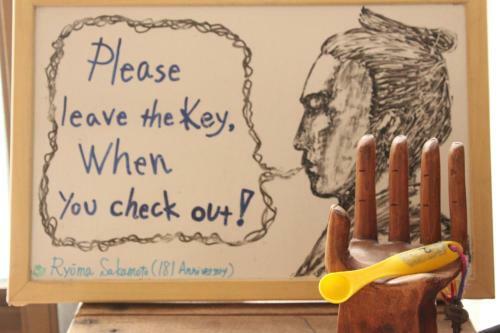 Please
leave the Key,
When
You check out!
Ryōma Sakamoto (181 Anniversary)